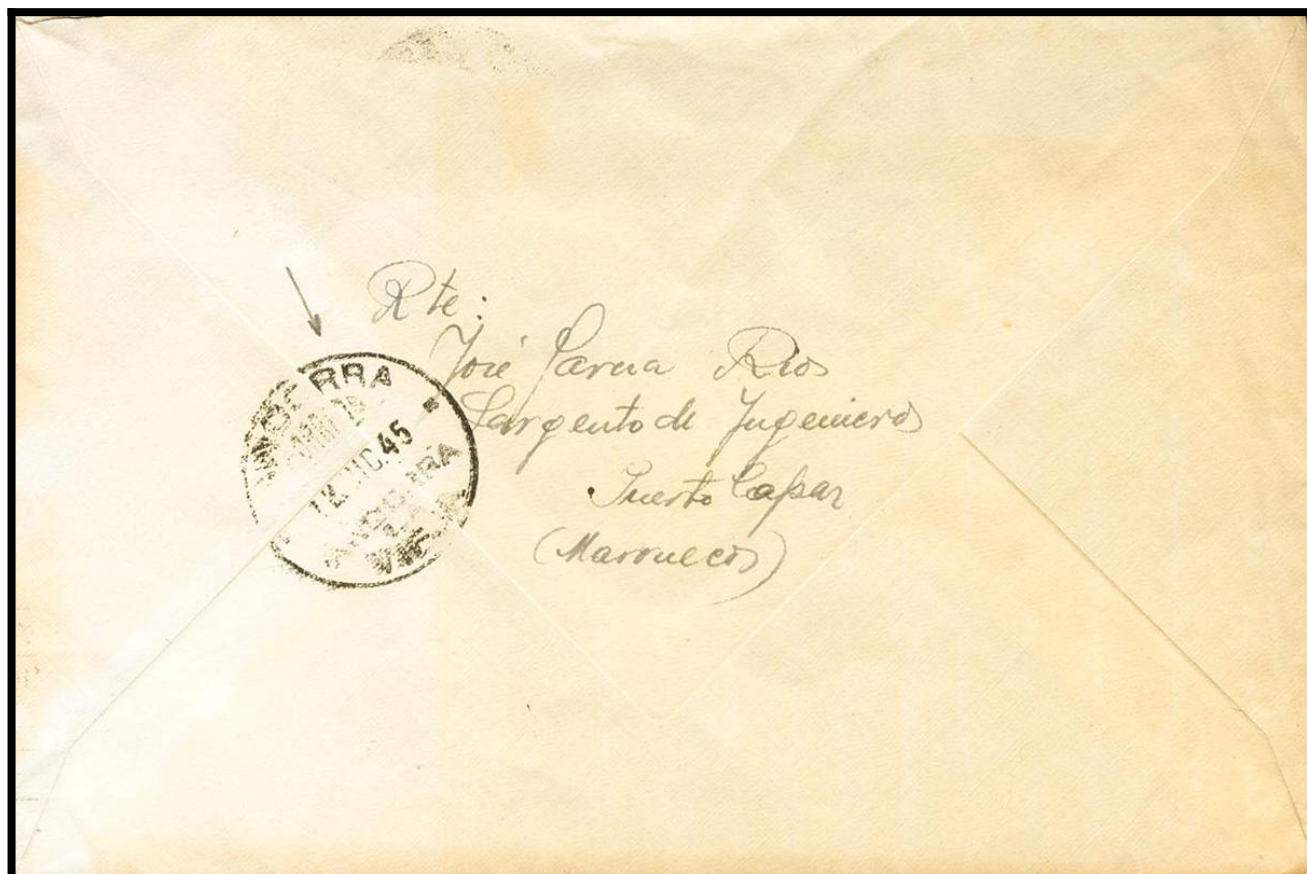 Rte:
José Garcia Rios
Sargento de Ingenieros
Puerto Capaz
(Marruecos)
12 DIC. 45